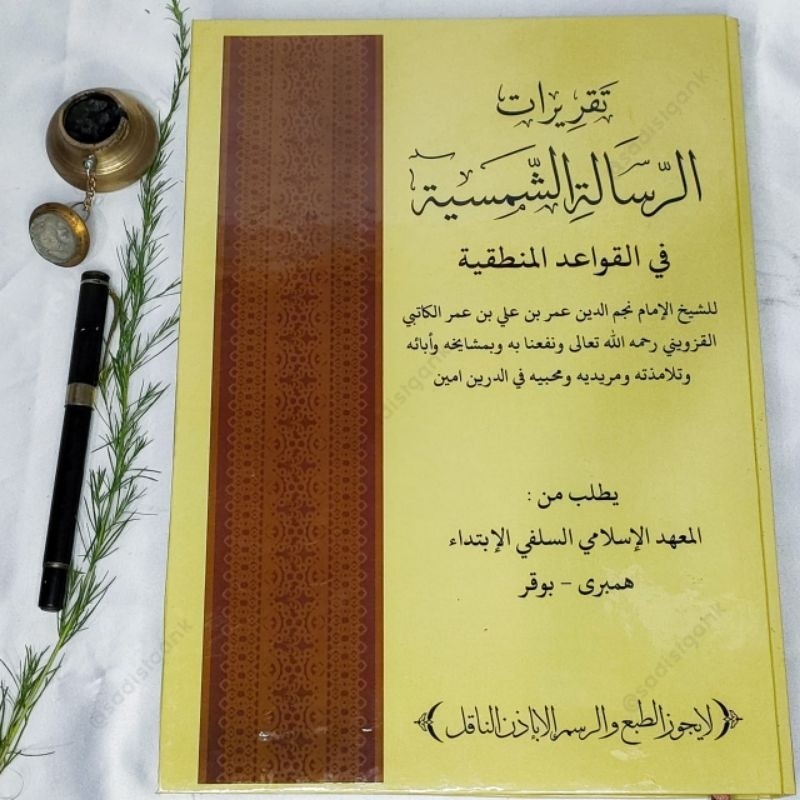 تقريرات
الرسالة الشمسية
في القواعد المنطقية
للشيخ الإمام نجم الدين عمر بن علي بن عمر الكاتبي
القزويني رحمه الله تعالى ونفعنا به وبمشايخه وأبائه
وتلامذته ومريديه ومحبيه في الدرين امين
يطلب من :
المعهد الإسلامي السلفي الإبتداء
همبرى - بوقر
﴿لايجوز الطبع والرسم إلا بإذن الناقل﴾
@sadistqank